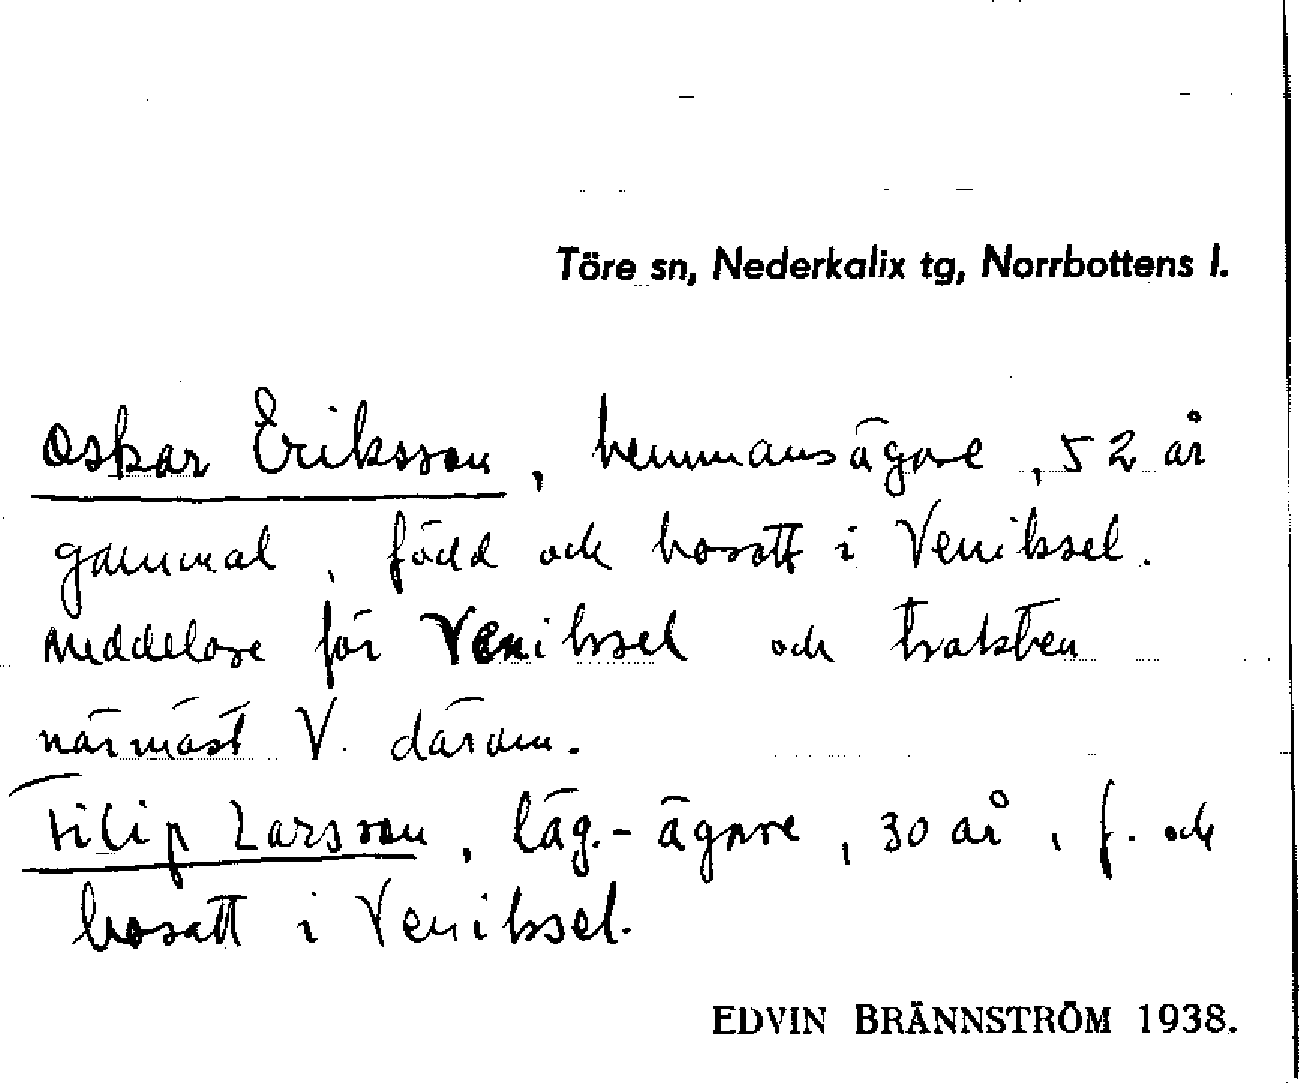 Töre sn, Nederkalix tg, Norrbottens l.
Oskar Eriksson, hemmansägare, 52 år
gammal, född och bosatt i Veniksel.
Meddelare för Veniksel och trakten
närmast V. därom.
Filip Larsson, läg.-ägare, 30 år, f. och
bosatt i Veniksel.
EDVIN BRÄNNSTRÖM 1938.